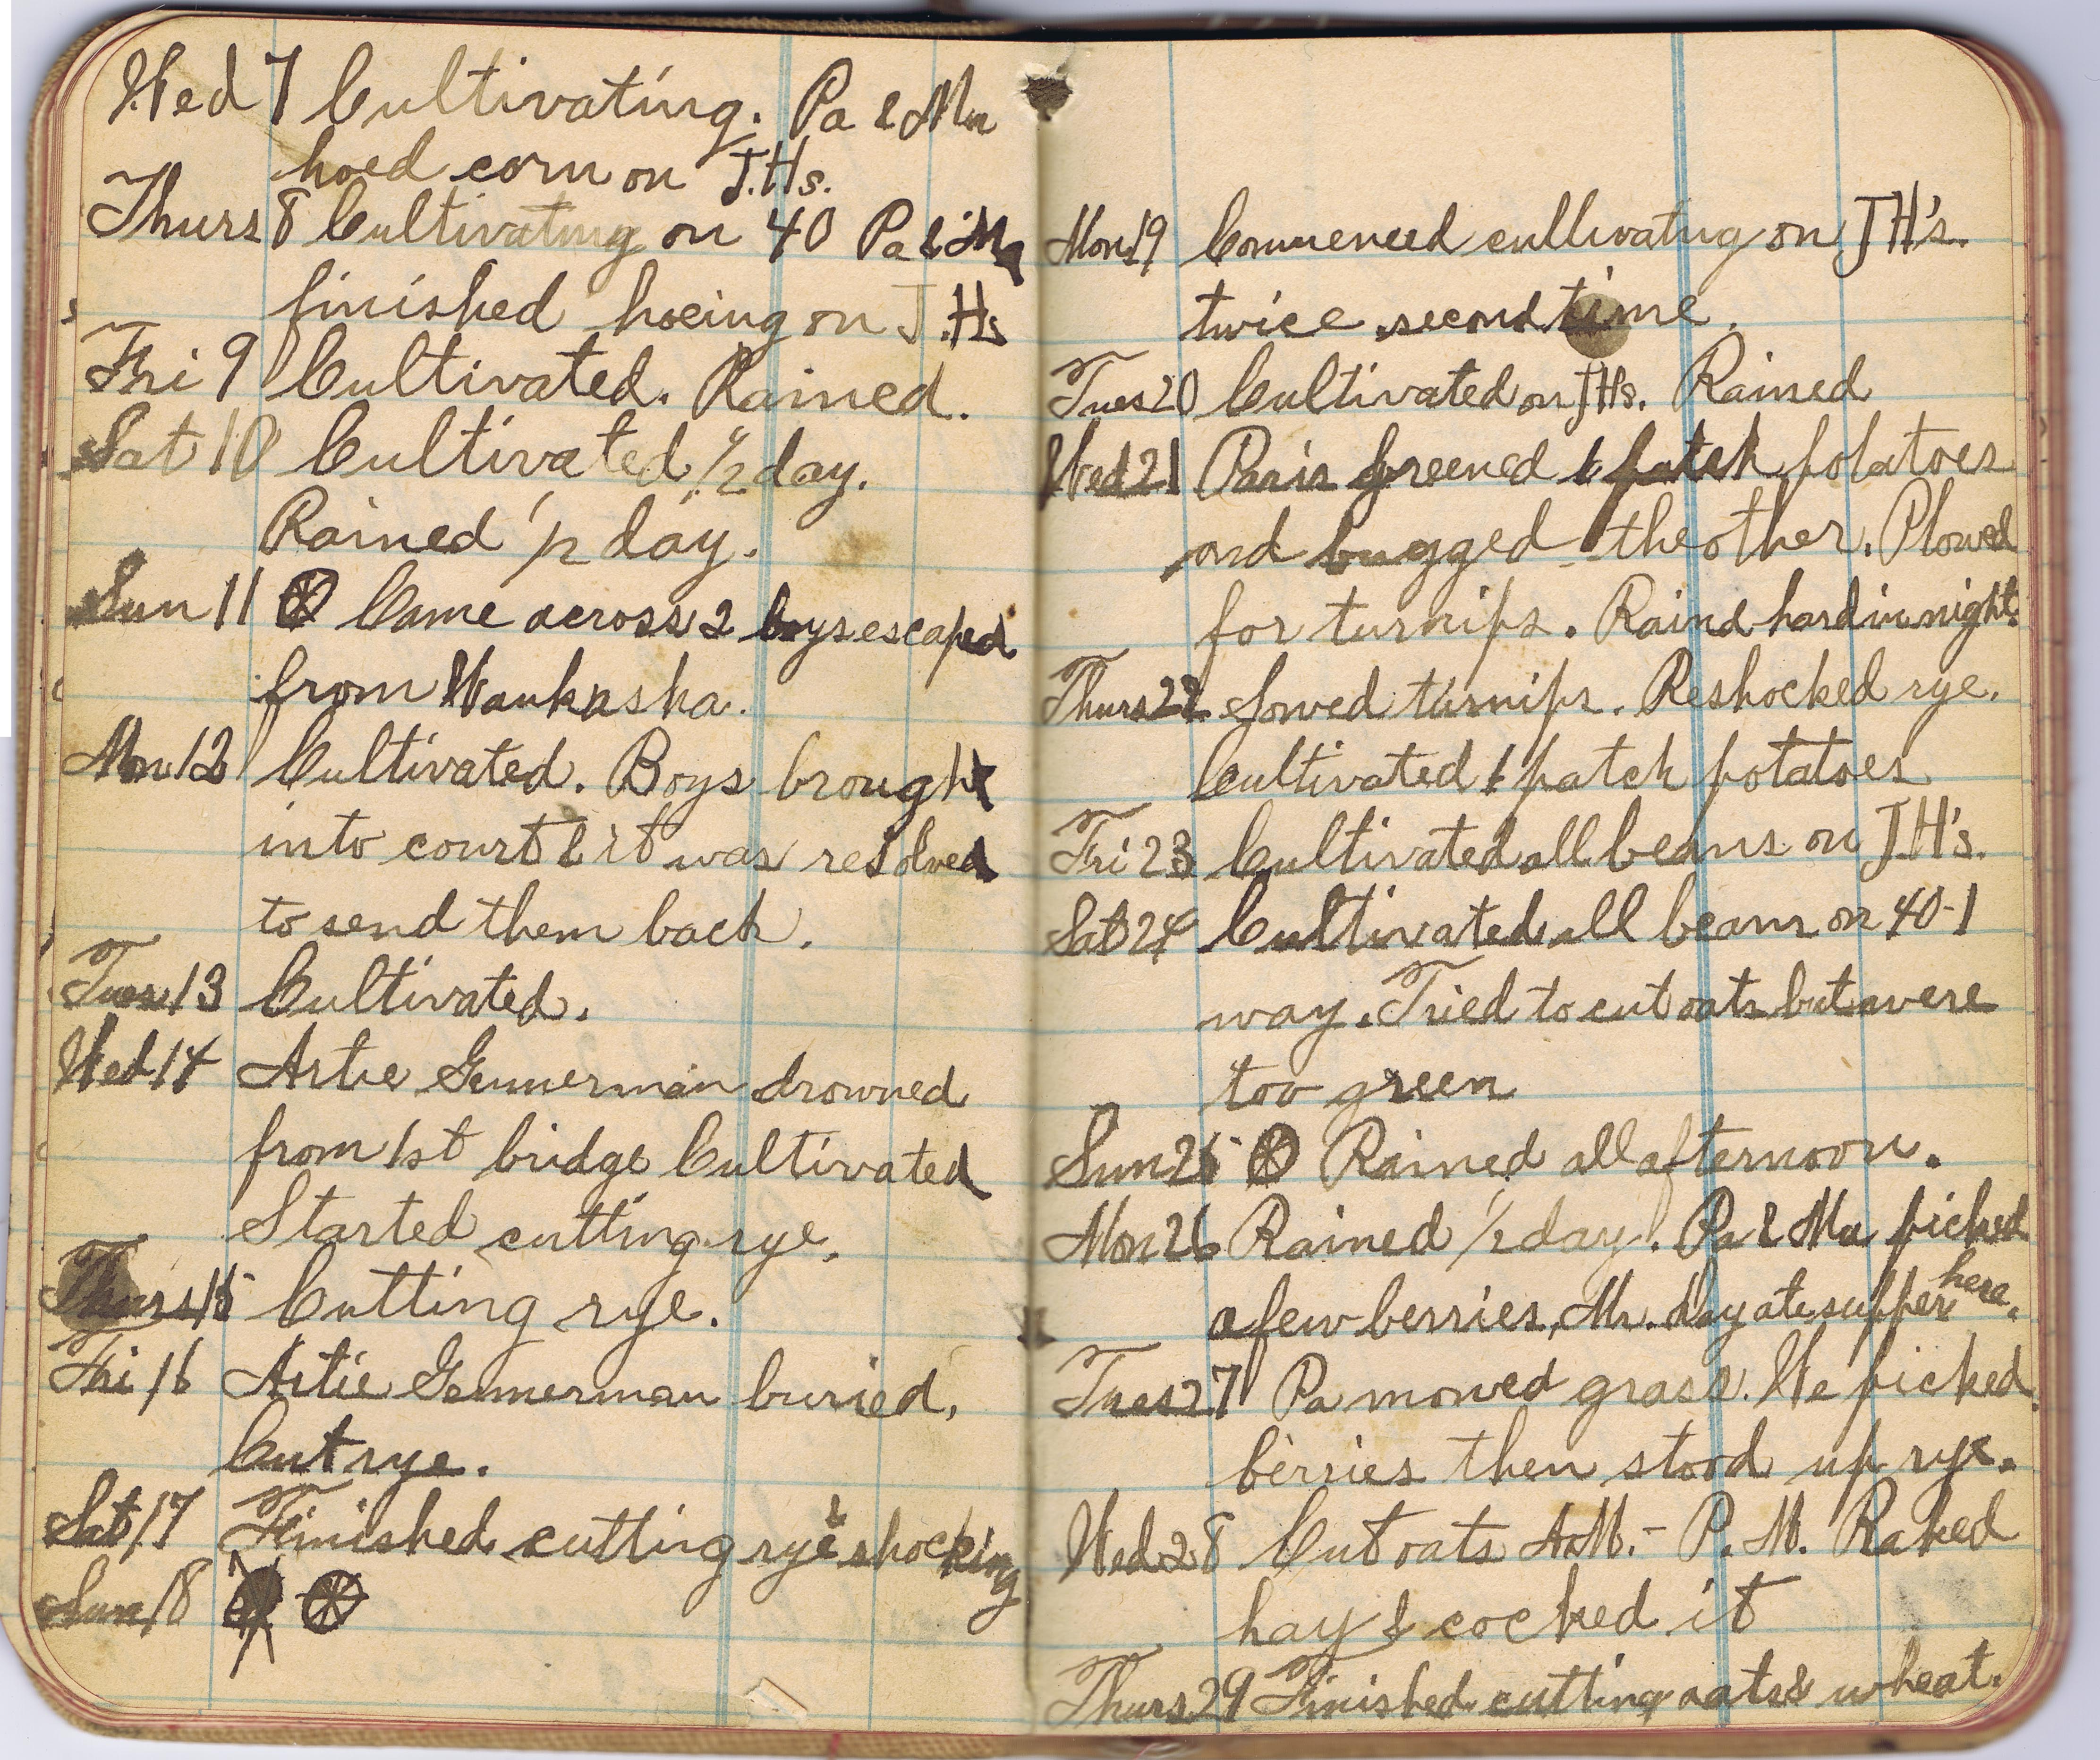 Wed 7 Cultivating. Pa & Ma
hoed corn on J.Hs.
Thurs 8 Cultivating on 40 Pa & Ma
finished hoeing on J.Hs
Fri 9 Cultivated. Rained.
Sat 10 Cultivated 1/2 day.
Rained 1/2 day.
Sun 11 Came across 2 boys escaped
from Waukasha.
Mon 12 Cultivated. Boys brought
into court & it was resolved
to send them back.
Tues 13 Cultivated.
Wed 14 Artie Gennerman drowned
from 1st bridge Cultivated
Started cutting rye.
Thurs 15 Cutting rye.
Fri 16 Artie Gennerman buried.
Cut rye.
Sat 17 Finished cutting rye & shocking
Sun 18
Mon 19 Commenced cultivatng on J H's.
twice second time.
Tues 20 Cultivated on J Hs. Rained
Wed 21 Paris Greened 1 patch potatoes
and bugged the other. Plowed
for turnips. Raind hard in night.
Thurs 22 Sowed turnips. Reshocked rye.
Cultivated 1 patch potatoes
Fri 23 Cultivated all beans on J.H's.
Sat 24 Cultivated all beans on 40-1
way. Tried to cut oats but were
too green
Sun 25 Rained all afternoon.
Mon 26 Rained 1/2 day. Pa & Ma picked
a few berries, Mr. Day ate supper here.
Tues 27 Pa mowed grass. We picked
berries then stood up rye.
Wed 28 Cut oats A.M. - P.M. Raked
hay & cocked it
Thurs 29 Finished cutting oats & wheat.